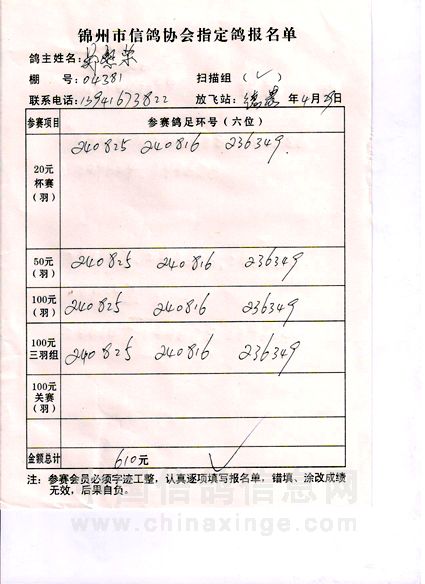 锦州市信鸽协会指定鸽报名单
鸽主姓名：
棚 号：04381 扫描组（✓）
联系电话：15941673822 放飞站： 年4月29日
参赛项目 参赛鸽足环号（六位）
20元
杯赛
（羽）
240825 240816 236349
50元
（羽）
240825 240816 236349
100元
（羽）
240825 240816 236349
100元
三羽组
240825 240816 236349
100元
关赛
（羽）
金额总计 610元 ✓
注：参赛会员必须字迹工整，认真逐项填写报名单，错填、涂改成绩
无效，后果自负。
中国信鸽信息网
www.chinaxinge.com